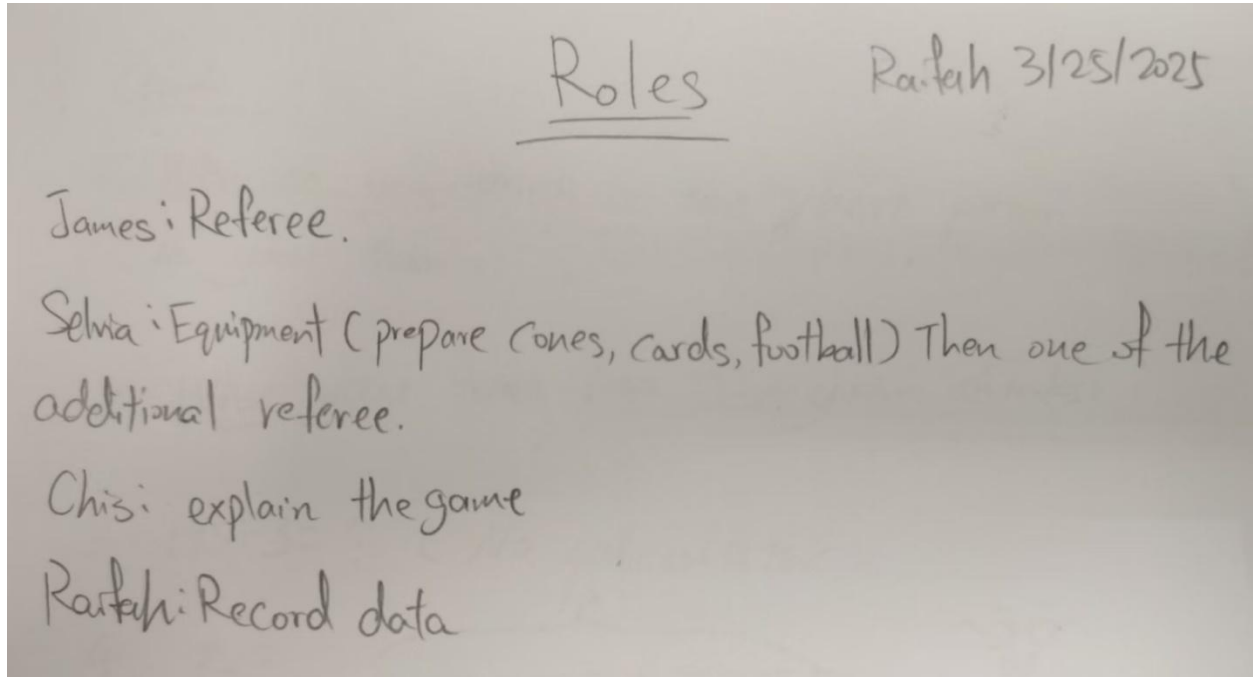 Roles
Raifah 3/25/2025
James: Referee.
Selvia: Equipment (prepare cones, cards, football) Then one of the
additional referee.
Chis: explain the game
Raifah: Record data